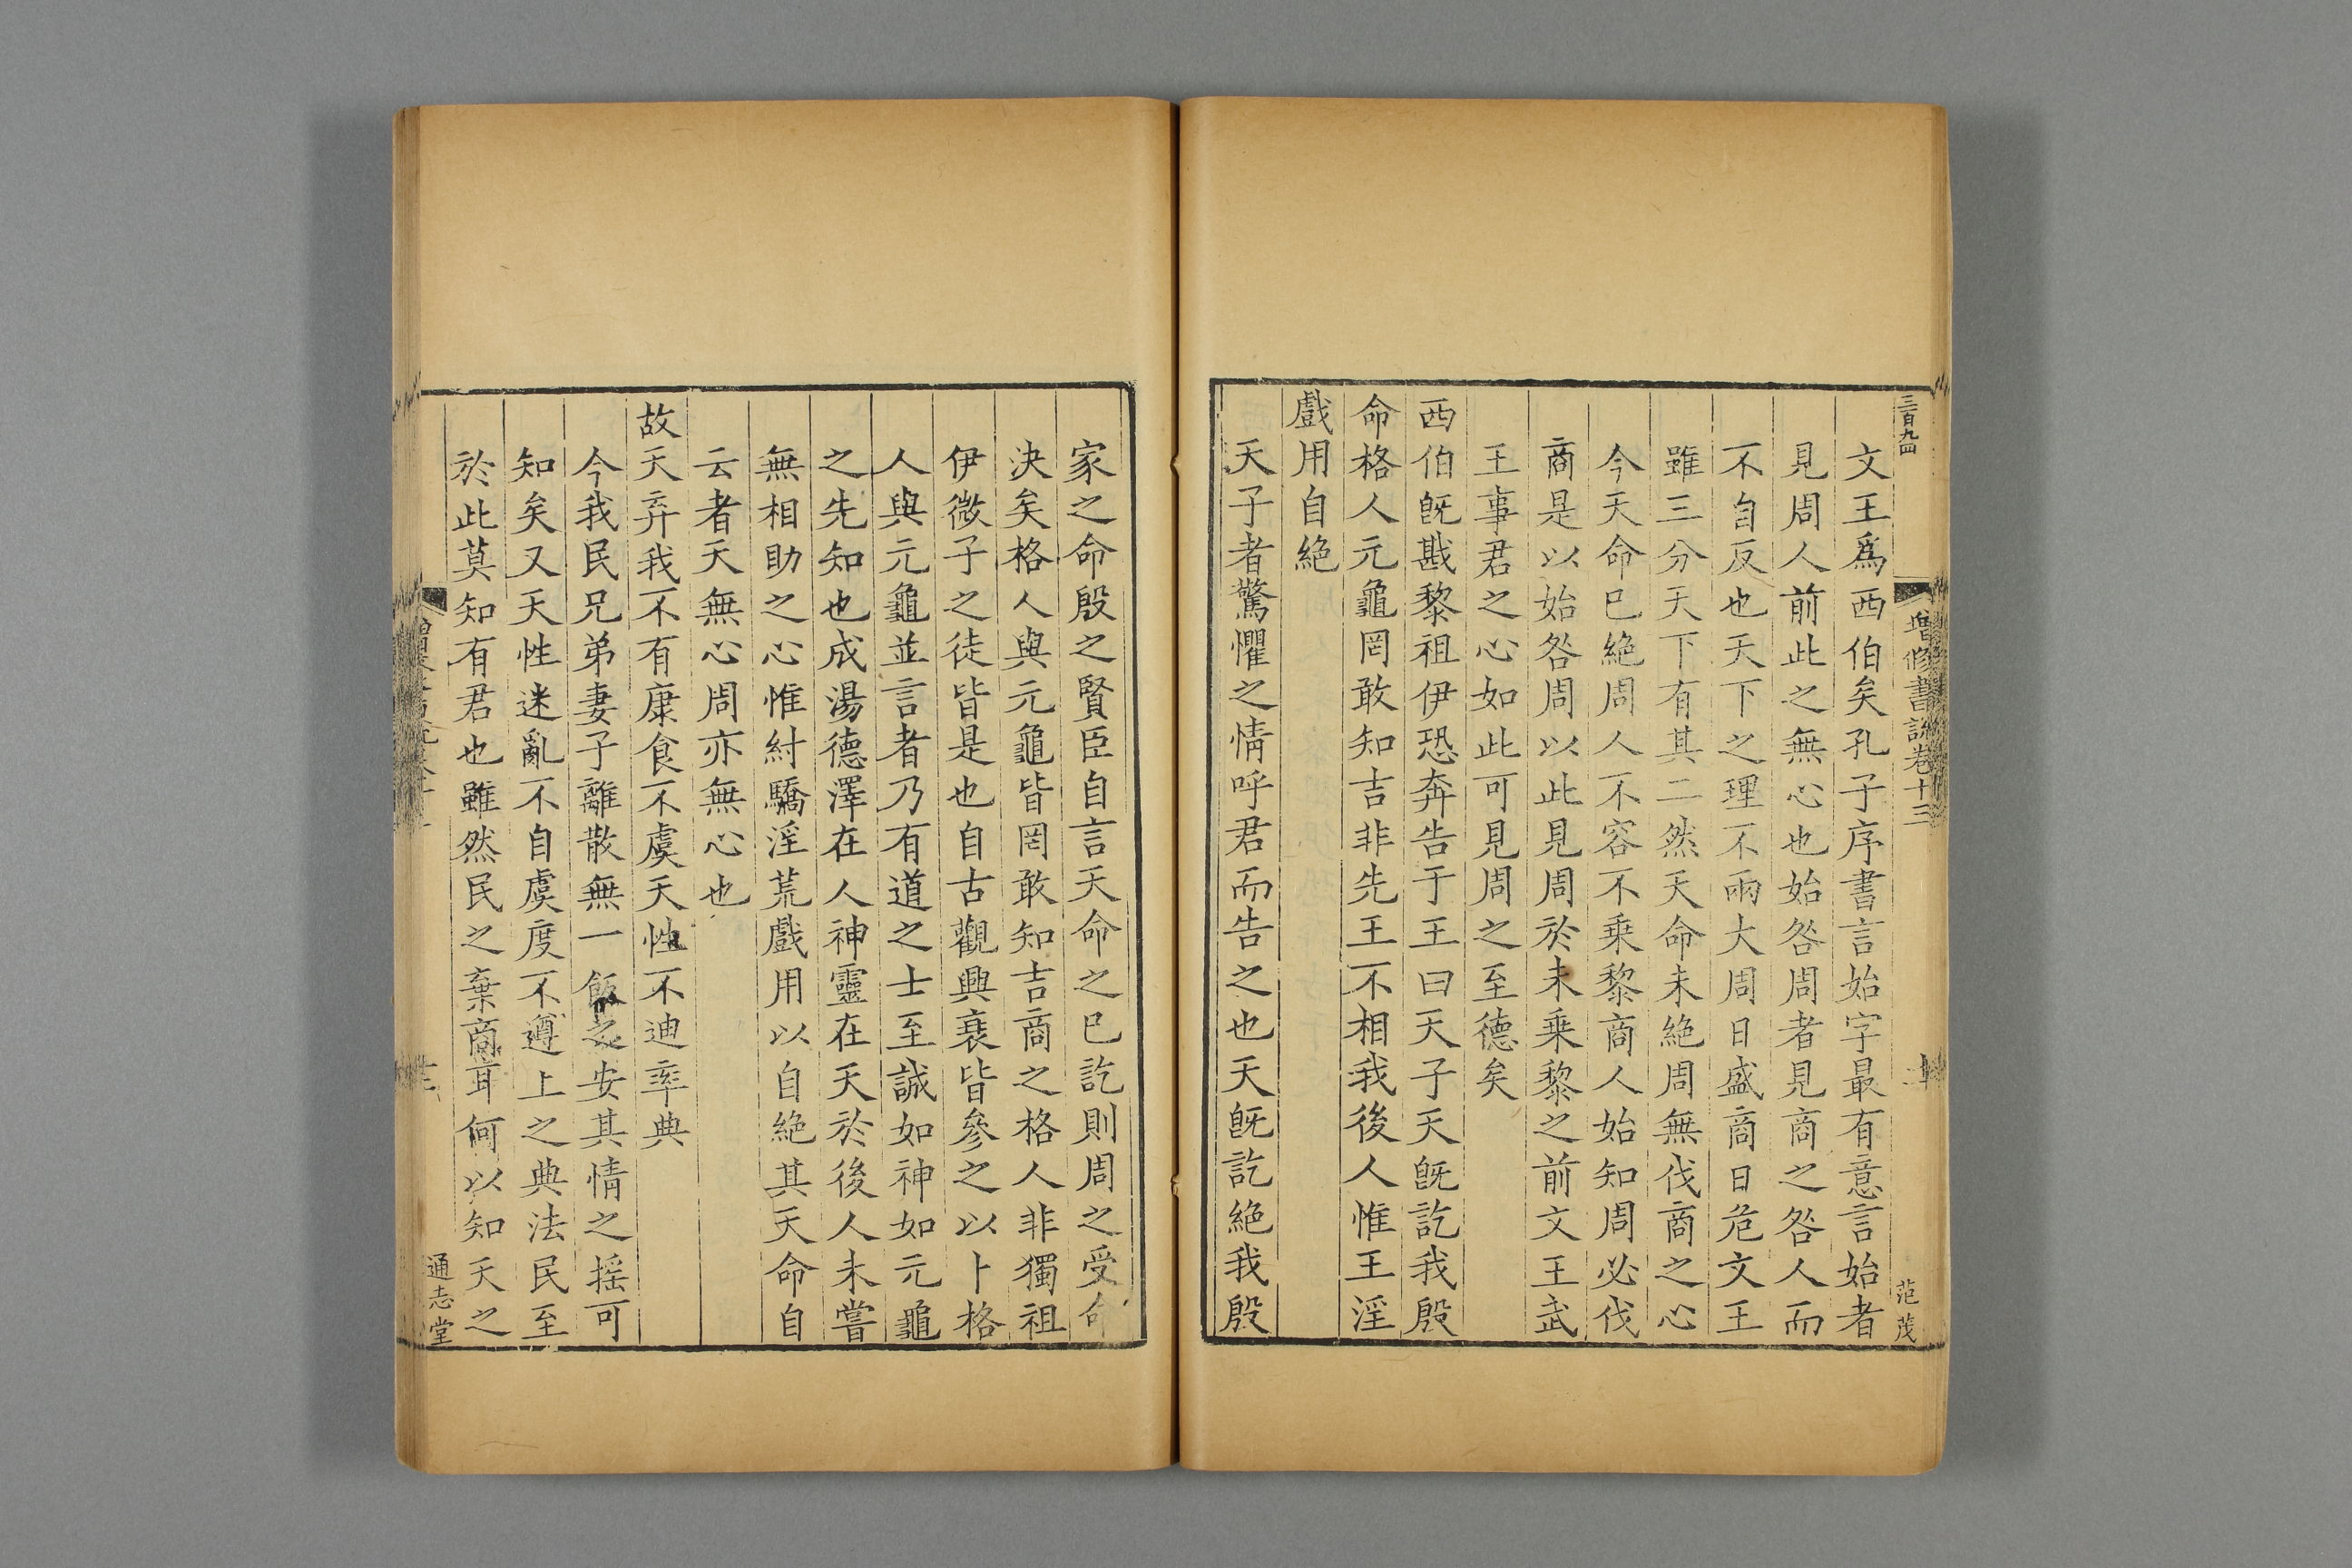 三百九四
增修書說卷十三
范茂
文王爲西伯矣孔子序書言始字最有意言始者
見周人前此之無心也始咎周者見商之咎人而
不自反也天下之理不兩大周日盛商日危文王
雖三分天下有其二然天命未絶周無伐商之心
今天命已絶周人不容不乗黎商人始知周必伐
商是以始咎周以此見周於未乗黎之前文王武
王事君之心如此可見周之至德矣
西伯旣戡黎祖伊恐奔告于王曰天子天旣訖我殷
命格人元龜罔敢知吉非先王不相我後人惟王淫
戲用自絶
天子者驚懼之情呼君而告之也天旣訖絶我殷
家之命殷之賢臣自言天命之已訖則周之受命
決矣格人與元龜皆罔敢知吉商之格人非獨祖
伊微子之徒皆是也自古觀興衰皆參之以卜格
人與元龜並言者乃有道之士至誠如神如元龜
之先知也成湯德澤在人神靈在天於後人未嘗
無相助之心惟紂驕淫荒戲用以自絶其天命自
云者天無心周亦無心也
故天弃我不有康食不虞天性不迪率典
今我民兄弟妻子離散無一飯之安其情之揺可
知矣又天性迷亂不自虞度不遵上之典法民至
於此莫知有君也雖然民之棄商耳何以知天之
通志堂